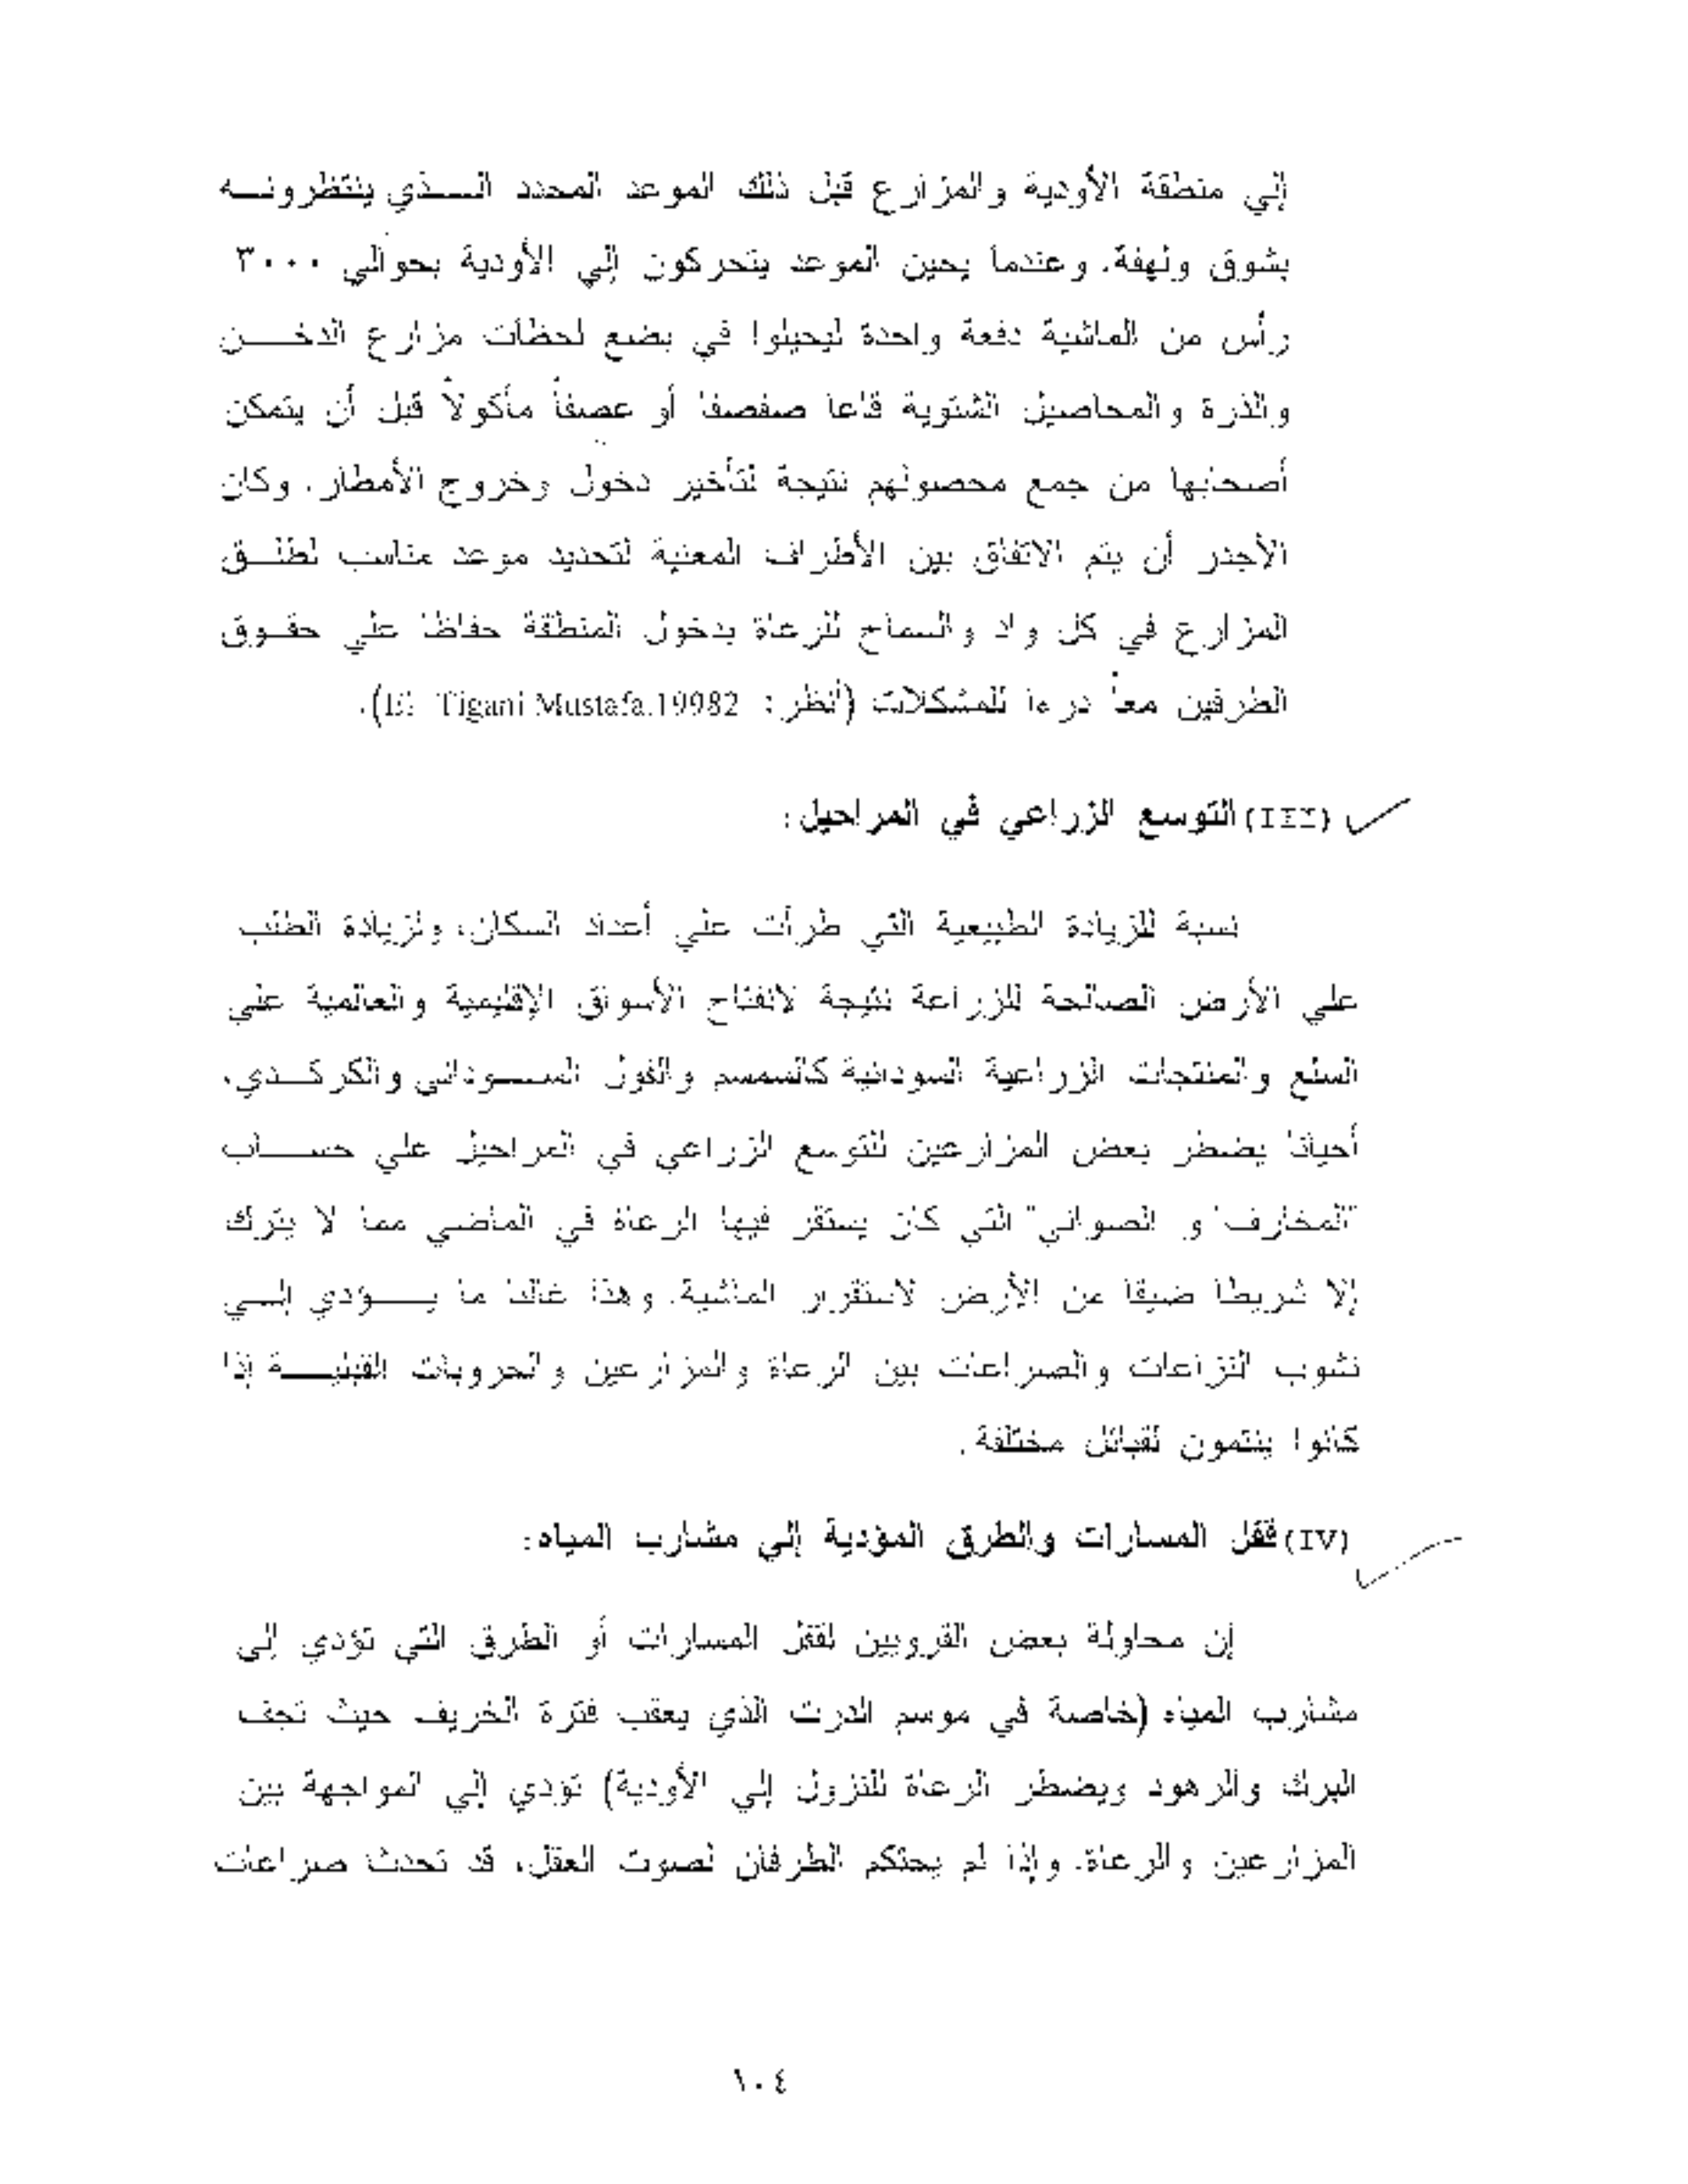 إلي منطقة الأودية والمزارع قبل ذلك الموعد المحدد الـذي ينتظرونـه
بشوق ولهفة. وعندما يحين الموعد يتحركون إلي الأودية بحوالي ٣٠٠٠
رأس من الماشية دفعة واحدة ليحيلوا في بضع لحظات مزارع الدخـن
والذرة والمحاصيل الشتوية قاعا صفصفا أو عصفاً مأكولاً قبل أن يتمكن
أصحابها من جمع محصولهم نتيجة لتأخير دخول وخروج الأمطار. وكان
الأجدر أن يتم الاتفاق بين الأطراف المعنية لتحديد موعد مناسب لطلـق
المزارع في كل واد والسماح للرعاة بدخول المنطقة حفاظا علي حقـوق
الطرفين معاً درءا للمشكلات (أنظر: El Tigani Mustafa.19982).
(III) التوسع الزراعي في المراحيل:
نسبة للزيادة الطبيعية التي طرأت علي أعداد السكان، ولزيادة الطلب
علي الأرض الصالحة للزراعة نتيجة لانفتاح الأسواق الإقليمية والعالمية علي
السلع والمنتجات الزراعية السودانية كالسمسم والفول السـوداني والكركـدي،
أحيانا يضطر بعض المزارعين للتوسع الزراعي في المراحيل علي حسـاب
"المخارف" و "الصواني" التي كان يستقر فيها الرعاة في الماضي مما لا يترك
إلا شريطا ضيقا من الأرض لاستقرار الماشية. وهذا غالبا ما يـؤدي إلـي
نشوب النزاعات والصراعات بين الرعاة والمزارعين والحروبات القبليـة إذا
كانوا ينتمون لقبائل مختلفة.
(IV) قفل المسارات والطرق المؤدية إلي مشارب المياه:
إن محاولة بعض القرويين لقفل المسارات أو الطرق التي تؤدي إلى
مشارب المياه (خاصة في موسم الدرت الذي يعقب فترة الخريف حيث تجف
البرك والرهود ويضطر الرعاة للنزول إلي الأودية) تؤدي إلي المواجهة بين
المزارعين والرعاة. وإذا لم يحتكم الطرفان لصوت العقل، قد تحدث صراعات
١٠٤